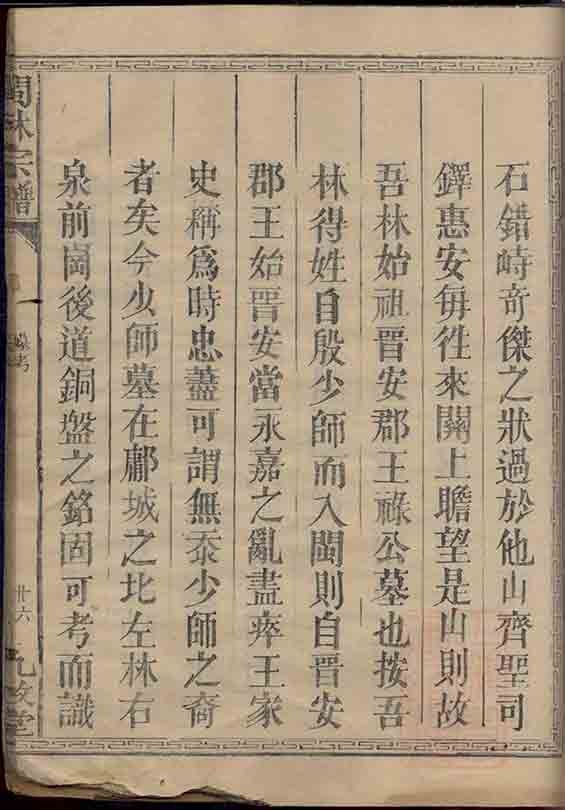 石錯峙奇傑之狀過於他山齊聖司
鐸惠安每徃來關上瞻望是山則故
吾林始祖晋安郡王祿公墓也按吾
林得姓自殷少師而入閩則自晋安
郡王始晋安當永嘉之亂盡瘁王家
史稱為時忠藎可謂無忝少師之裔
者矣今少師墓在鄘城之北左林右
泉前崗後道銅盤之銘固可考而識
林宗譜
墓考
廿六